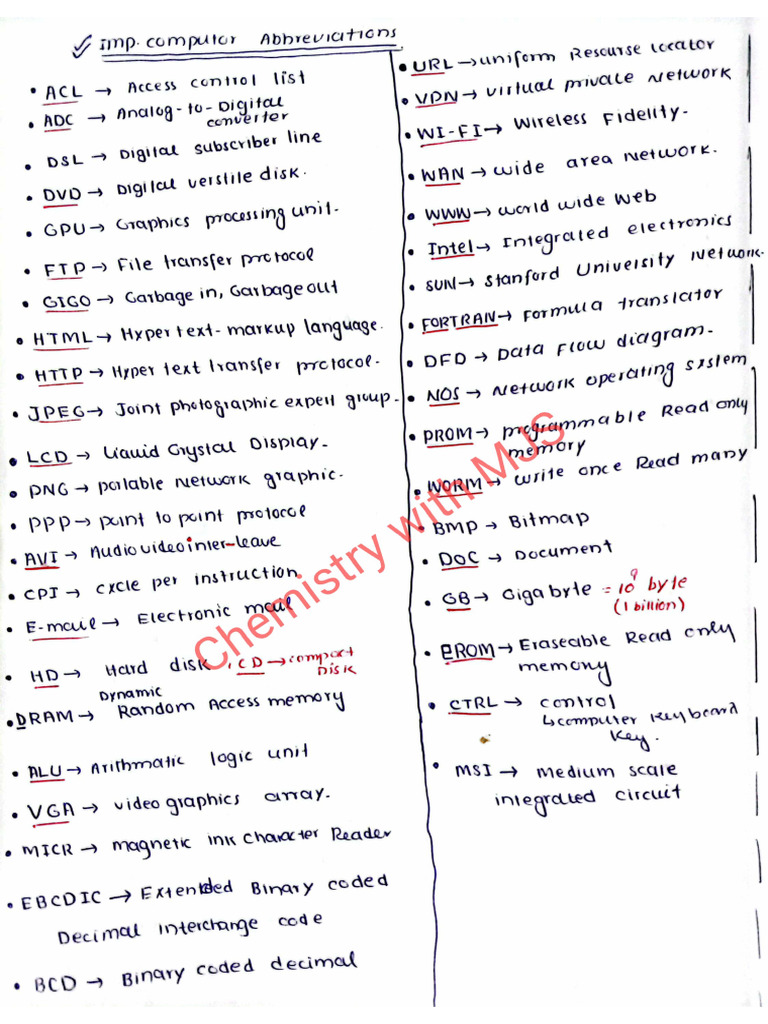 Imp. computer Abbreviations
• ACL → Access control list
• ADC → Analog-to-Digital
converter
• DSL → Digital subscriber line
• DVD → Digital verstile disk.
• GPU → Graphics processing unit.
• FTP → File transfer protocol
• GIGO → Garbage in, Garbage out
• HTML → Hyper text-markup language.
• HTTP → Hyper text transfer protocol.
• JPEG → Joint photographic expert group.
• LCD → Liquid Crystal Display.
• PNG → portable network graphic.
• PPP → point to point protocol
• AVI → Audio video inter-leave
• CPI → cycle per instruction.
• E-mail → Electronic mail
• HD → Hard disk, CD → compact
Disk
Dynamic
• DRAM → Random Access memory
• ALU → Arithmatic logic unit
• VGA → video graphics array.
• MICR → magnetic ink character Reader
• EBCDIC → Extended Binary coded
Decimal interchange code
• BCD → Binary coded decimal
• URL → uniform Resourse locator
• VPN → virtual private network
• WI-FI → Wireless Fidelity.
• WAN → wide area network.
• WWW → world wide web
• Intel → Integrated electronics
• SUN → Stanford University Network.
• FORTRAN → Formula translator
• DFD → Data Flow diagram.
• NOS → Network operating system
• PROM → programmable Read only
memory
• WORM → write once Read many
• BMP → Bitmap
• DOC → Document
• GB → Gigabyte = 10⁹ byte
(1 billion)
• EROM → Eraseable Read only
memory
• CTRL → control
↳ computer keyboard
key.
• MSI → medium scale
integrated circuit
Chemistry with MJS